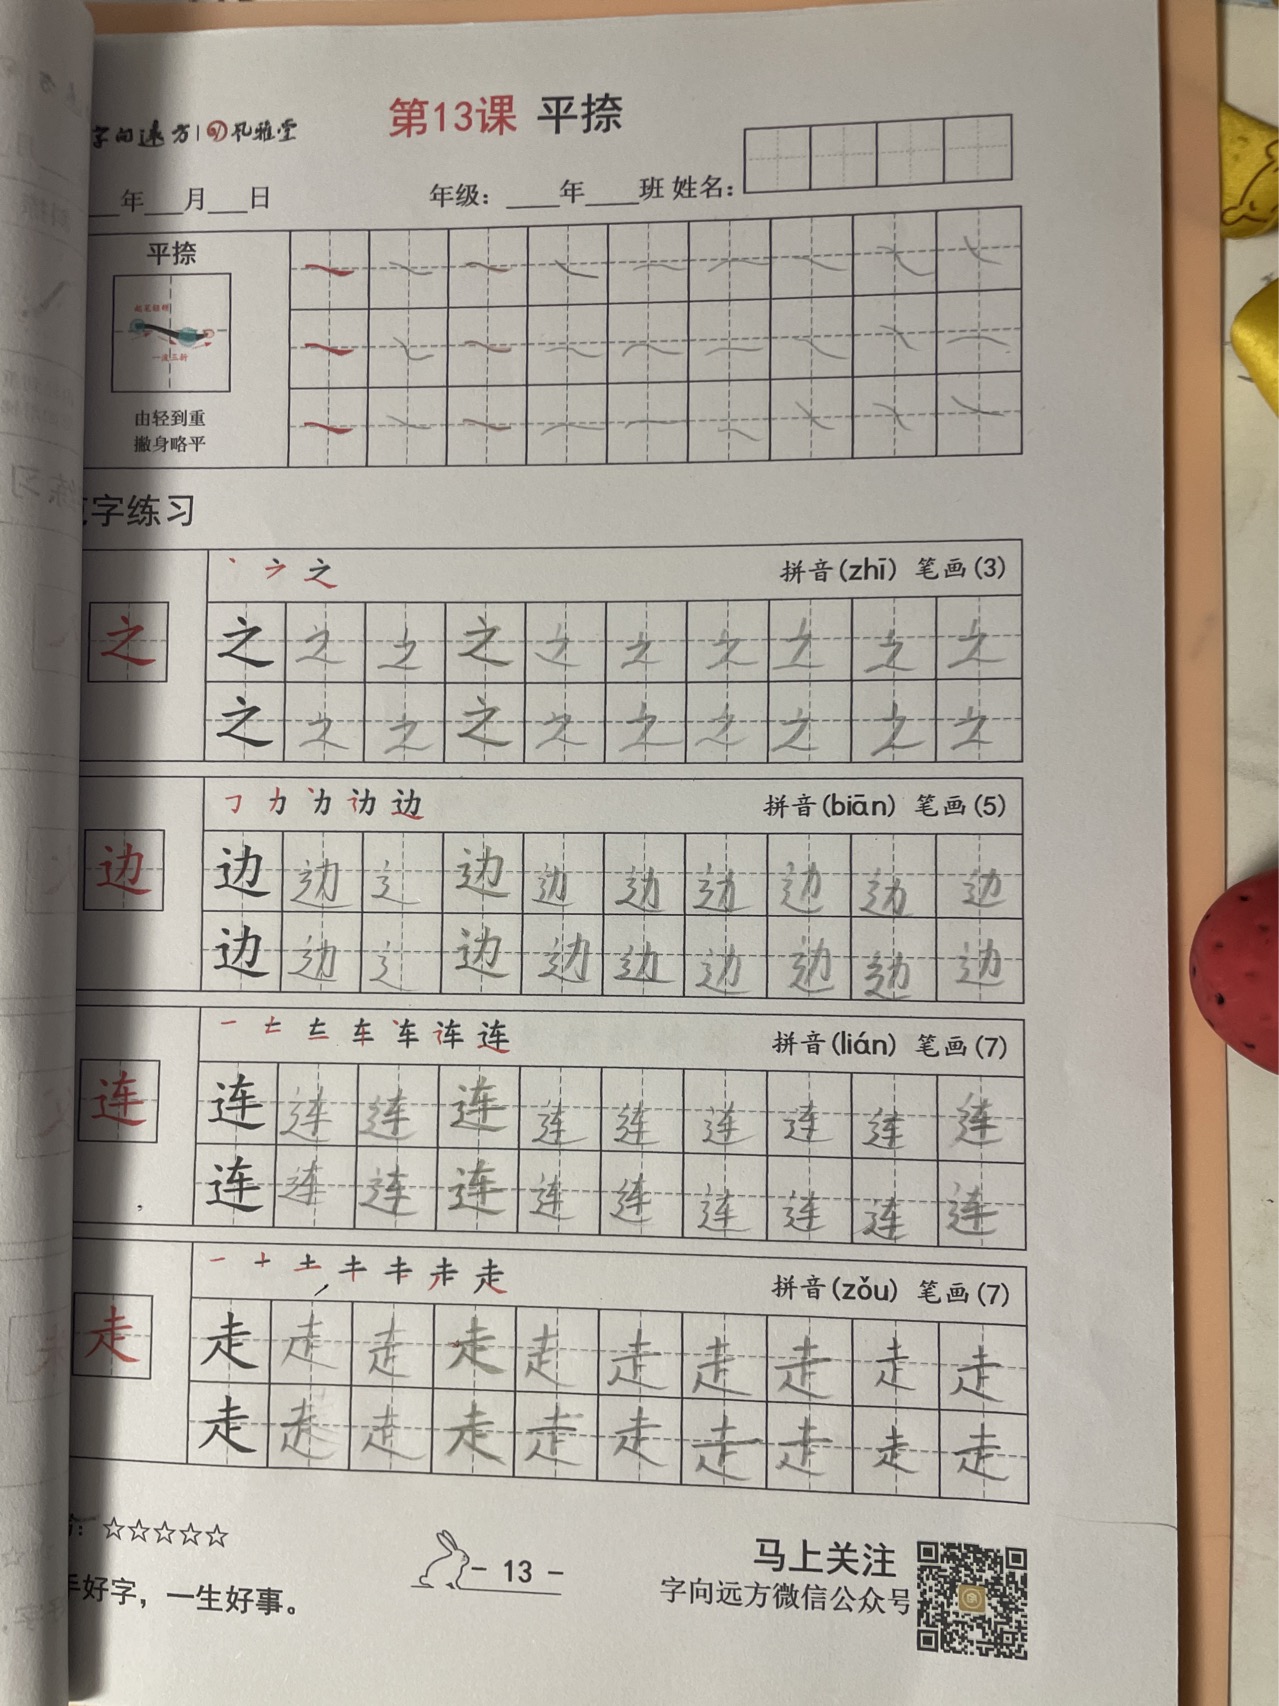 第13课 平捺
字向远方 孔雅堂
年 月 日 年级： 年 班 姓名：
平捺
起笔轻顿
一波三折
由轻到重
撇身略平
字练习
之 拼音(zhī) 笔画(3)
之 之 之 之 之 之 之 之 之 之 之
之 之 之 之 之 之 之 之 之 之
边 拼音(biān) 笔画(5)
边 边 辶 边 边 边 边 边 边 边 边
边 边 辶 边 边 边 边 边 边 边
车 连 拼音(lián) 笔画(7)
连 连 连 连 连 连 连 连 连 连 连
连 连 连 连 连 连 连 连 连 连
一 十 土 走 拼音(zǒu) 笔画(7)
走 走 走 走 走 走 走 走 走 走 走
走 走 走 走 走 走 走 走 走 走
：☆☆☆☆☆
手好字，一生好事。
- 13 -
马上关注
字向远方微信公众号